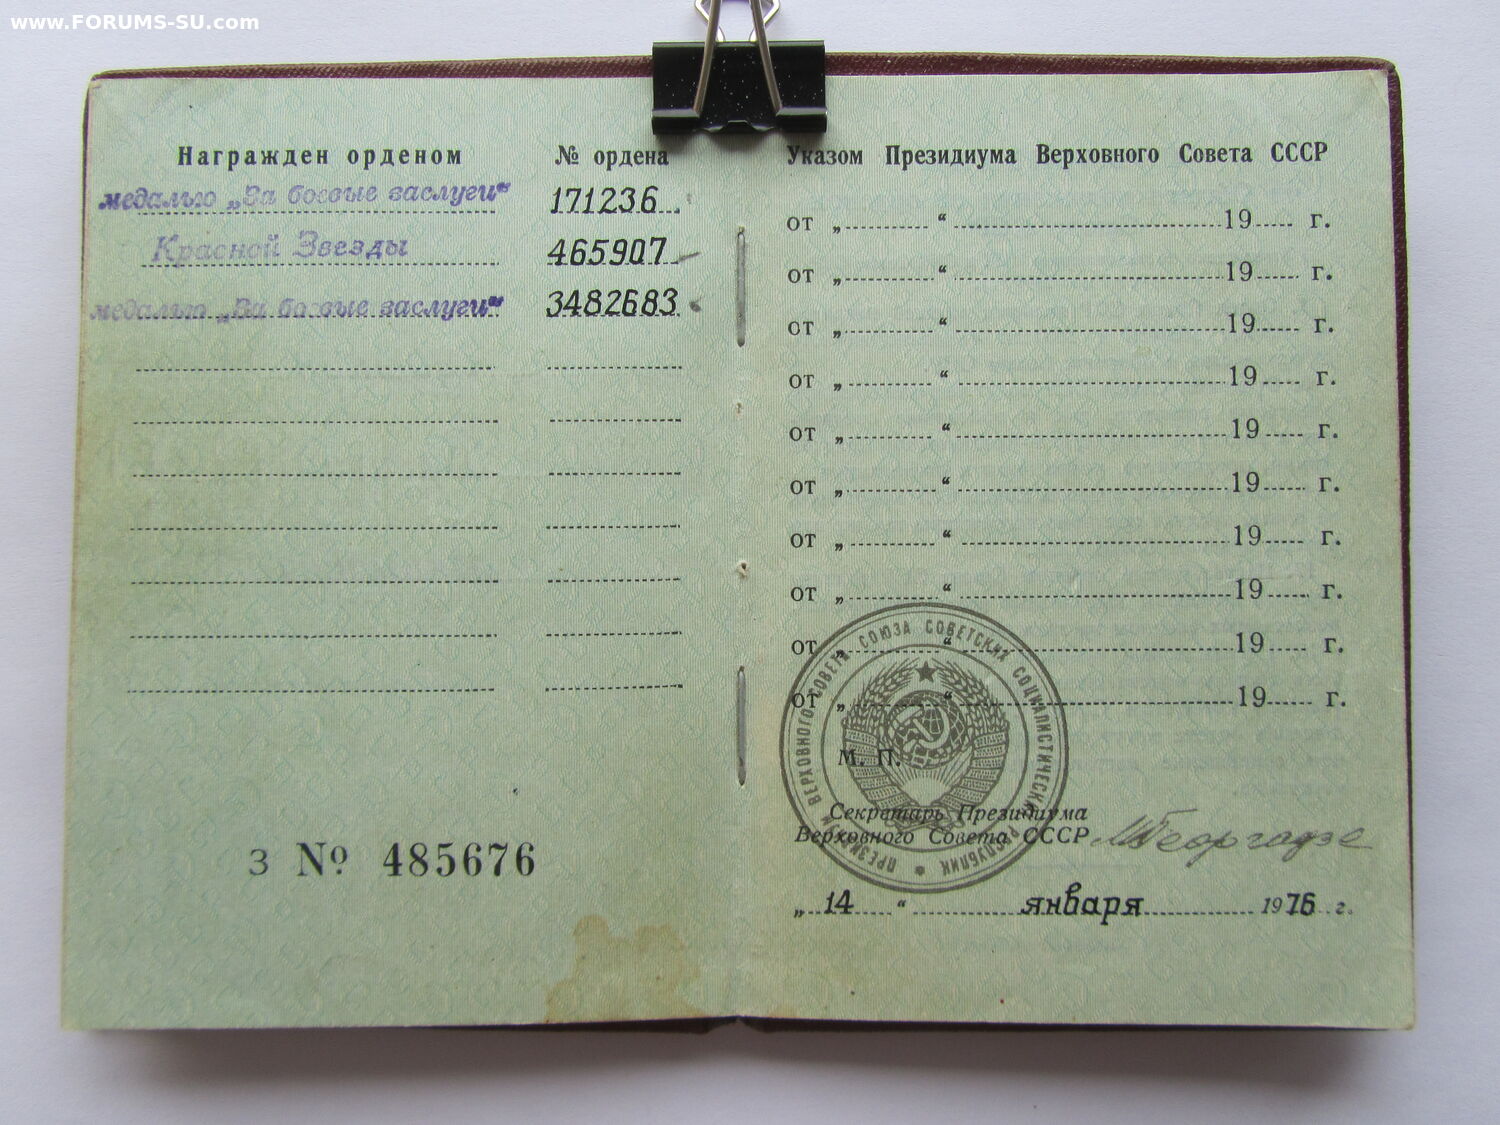 www.FORUMS-SU.com
Награжден орденом № ордена
медалью „За боевые заслуги“ 171236
Красной Звезды 465907
медалью „За боевые заслуги“ 3482683
З № 485676
Указом Президиума Верховного Совета СССР
от „ “ 19 г.
от „ “ 19 г.
от „ “ 19 г.
от „ “ 19 г.
от „ “ 19 г.
от „ “ 19 г.
от „ “ 19 г.
от „ “ 19 г.
от „ “ 19 г.
от „ “ 19 г.
ПРЕЗИДИУМ ВЕРХОВНОГО СОВЕТА СОЮЗА СОВЕТСКИХ СОЦИАЛИСТИЧЕСКИХ РЕСПУБЛИК
М. П.
Секретарь Президиума
Верховного Совета СССР МГеоргадзе
„ 14 “ января 1976 г.